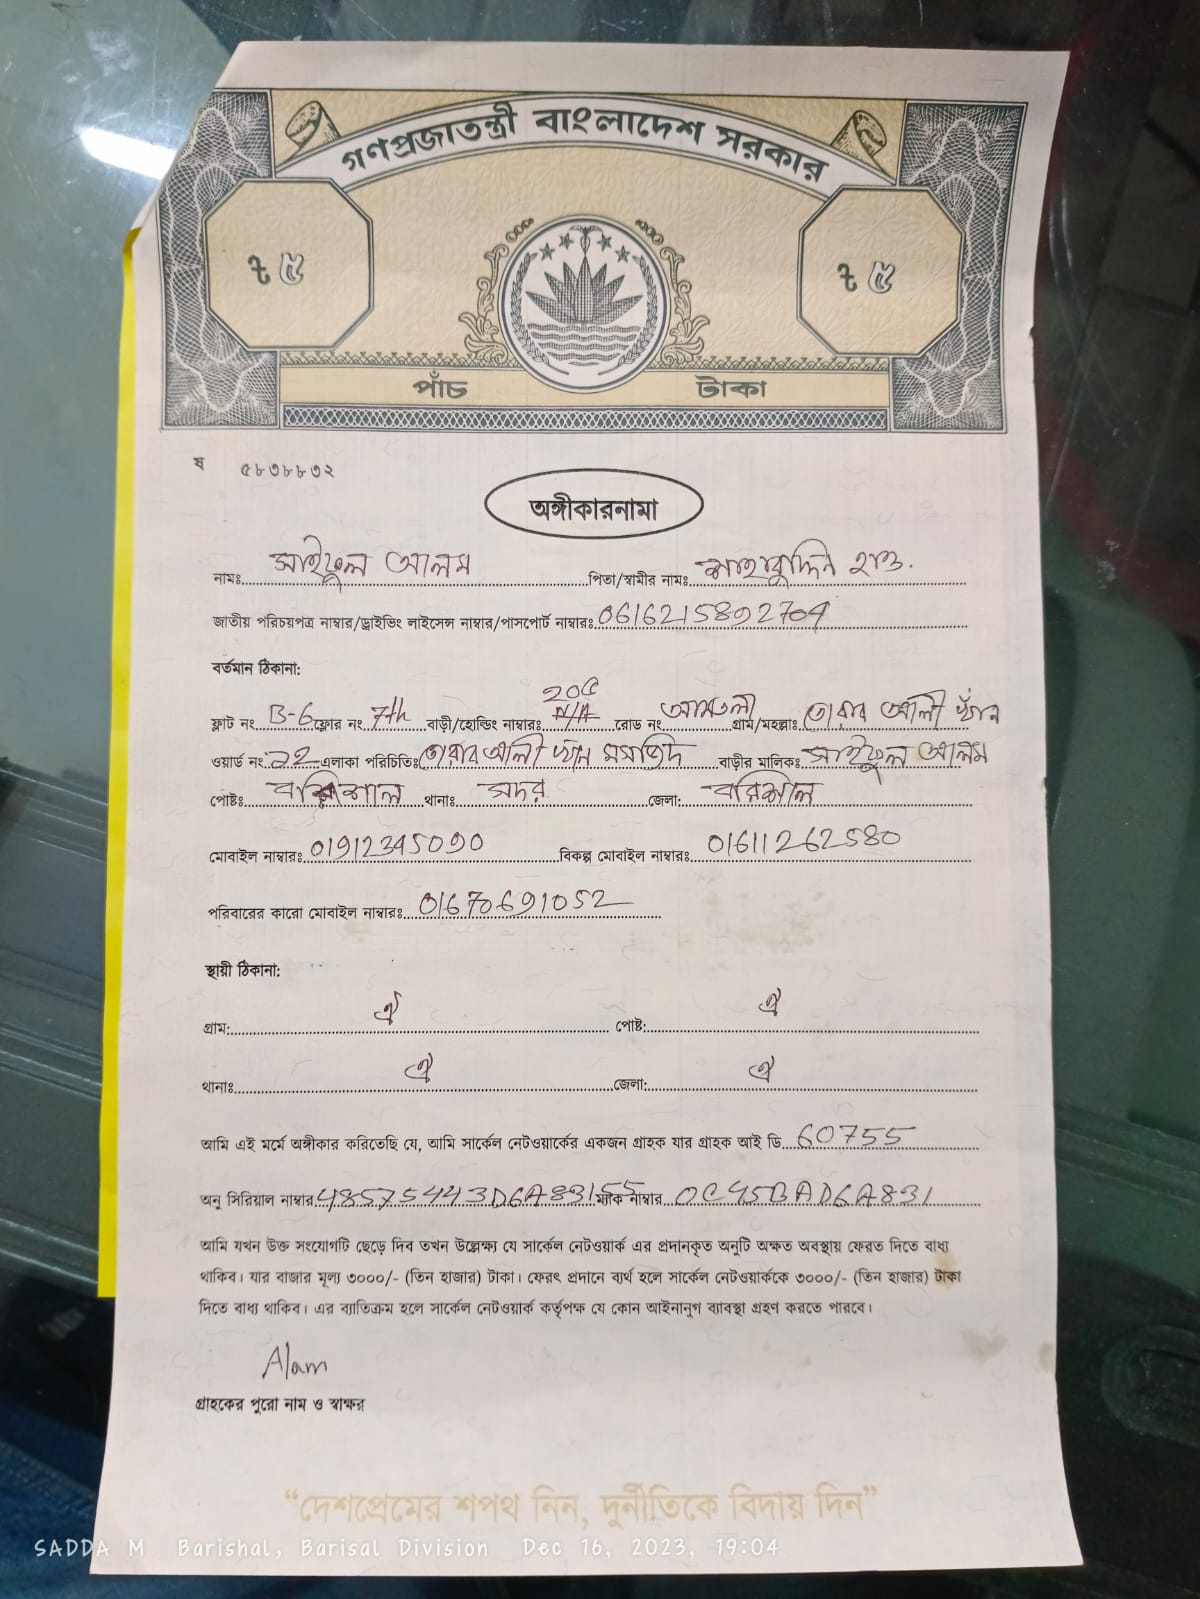 গণপ্রজাতন্ত্রী বাংলাদেশ সরকার
৳ ৫ ৳ ৫
পাঁচ টাকা
ষ ৫৮৩৮৮৩২
অঙ্গীকারনামা
নামঃ সাইফুল আলম পিতা/স্বামীর নামঃ শাহাবুদ্দিন হাং.
জাতীয় পরিচয়পত্র নাম্বার/ড্রাইভিং লাইসেন্স নাম্বার/পাসপোর্ট নাম্বারঃ 0616215892704
বর্তমান ঠিকানা:
ফ্লাট নং B-6 ফ্লোর নং 7th বাড়ী/হোল্ডিং নাম্বারঃ N/A রোড নং আমতলী গ্রাম/মহল্লাঃ আলী খাঁন
ওয়ার্ড নং 22 এলাকা পরিচিতিঃ আলী খাঁন মসজিদ বাড়ীর মালিকঃ সাইফুল আলম
পোষ্টঃ বরিশাল থানাঃ সদর জেলা: বরিশাল
মোবাইল নাম্বারঃ 01912345090 বিকল্প মোবাইল নাম্বারঃ 01611262580
পরিবারের কারো মোবাইল নাম্বারঃ 01670691052
স্থায়ী ঠিকানা:
গ্রাম: ঐ পোষ্ট: ঐ
থানাঃ ঐ জেলা: ঐ
আমি এই মর্মে অঙ্গীকার করিতেছি যে, আমি সার্কেল নেটওয়ার্কের একজন গ্রাহক যার গ্রাহক আই ডি 60755
অনু সিরিয়াল নাম্বার 48575443D6A83155 ম্যাক নাম্বার 0C45BAD6A831
আমি যখন উক্ত সংযোগটি ছেড়ে দিব তখন উল্লেক্ষ্য যে সার্কেল নেটওয়ার্ক এর প্রদানকৃত অনুটি অক্ষত অবস্থায় ফেরত দিতে বাধ্য
থাকিব। যার বাজার মূল্য ৩০০০/- (তিন হাজার) টাকা। ফেরৎ প্রদানে ব্যর্থ হলে সার্কেল নেটওয়ার্ককে ৩০০০/- (তিন হাজার) টাকা
দিতে বাধ্য থাকিব। এর ব্যতিক্রম হলে সার্কেল নেটওয়ার্ক কর্তৃপক্ষ যে কোন আইনানুগ ব্যাবস্থা গ্রহণ করতে পারবে।
Alam
গ্রাহকের পুরো নাম ও স্বাক্ষর
“দেশপ্রেমের শপথ নিন, দুর্নীতিকে বিদায় দিন”
SADDA M Barishal, Barisal Division Dec 16, 2023, 19:04